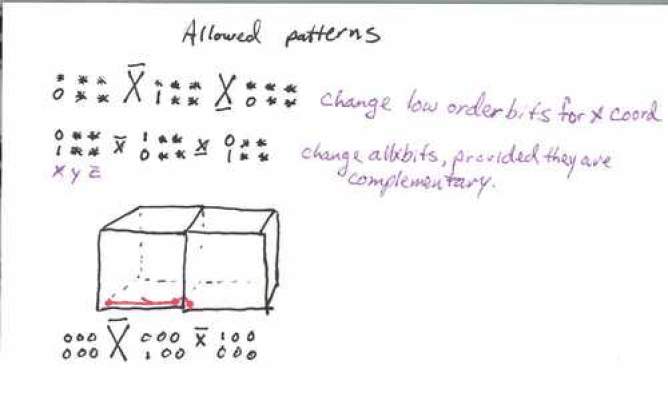 Allowed patterns
* * * X̄ * * * X̲ * * *
0 * * 1 * * 0 * * change low order bits for x coord
0 * * x̄ 1 * * x̲ 0 * *
1 * * 0 * * 1 * * change allxbits, provided they are
x y z complementary.
0 0 0 X̄ 0 0 0 x̄ 1 0 0
0 0 0 1 0 0 0 0 0